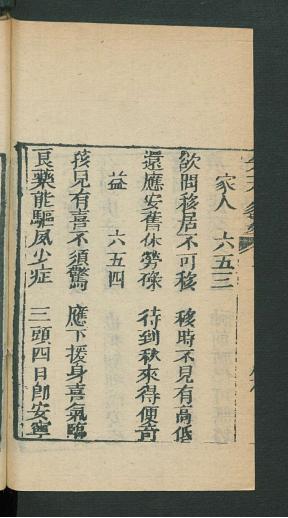 家人 六五三
欲問移居不可移 移時不見有高低
還應安舊休勞碌 待到秋來得便奇
益 六五四
孩兒有喜不須驚 應下援身喜氣臨
良藥能驅風少症 三頭四日即安寧